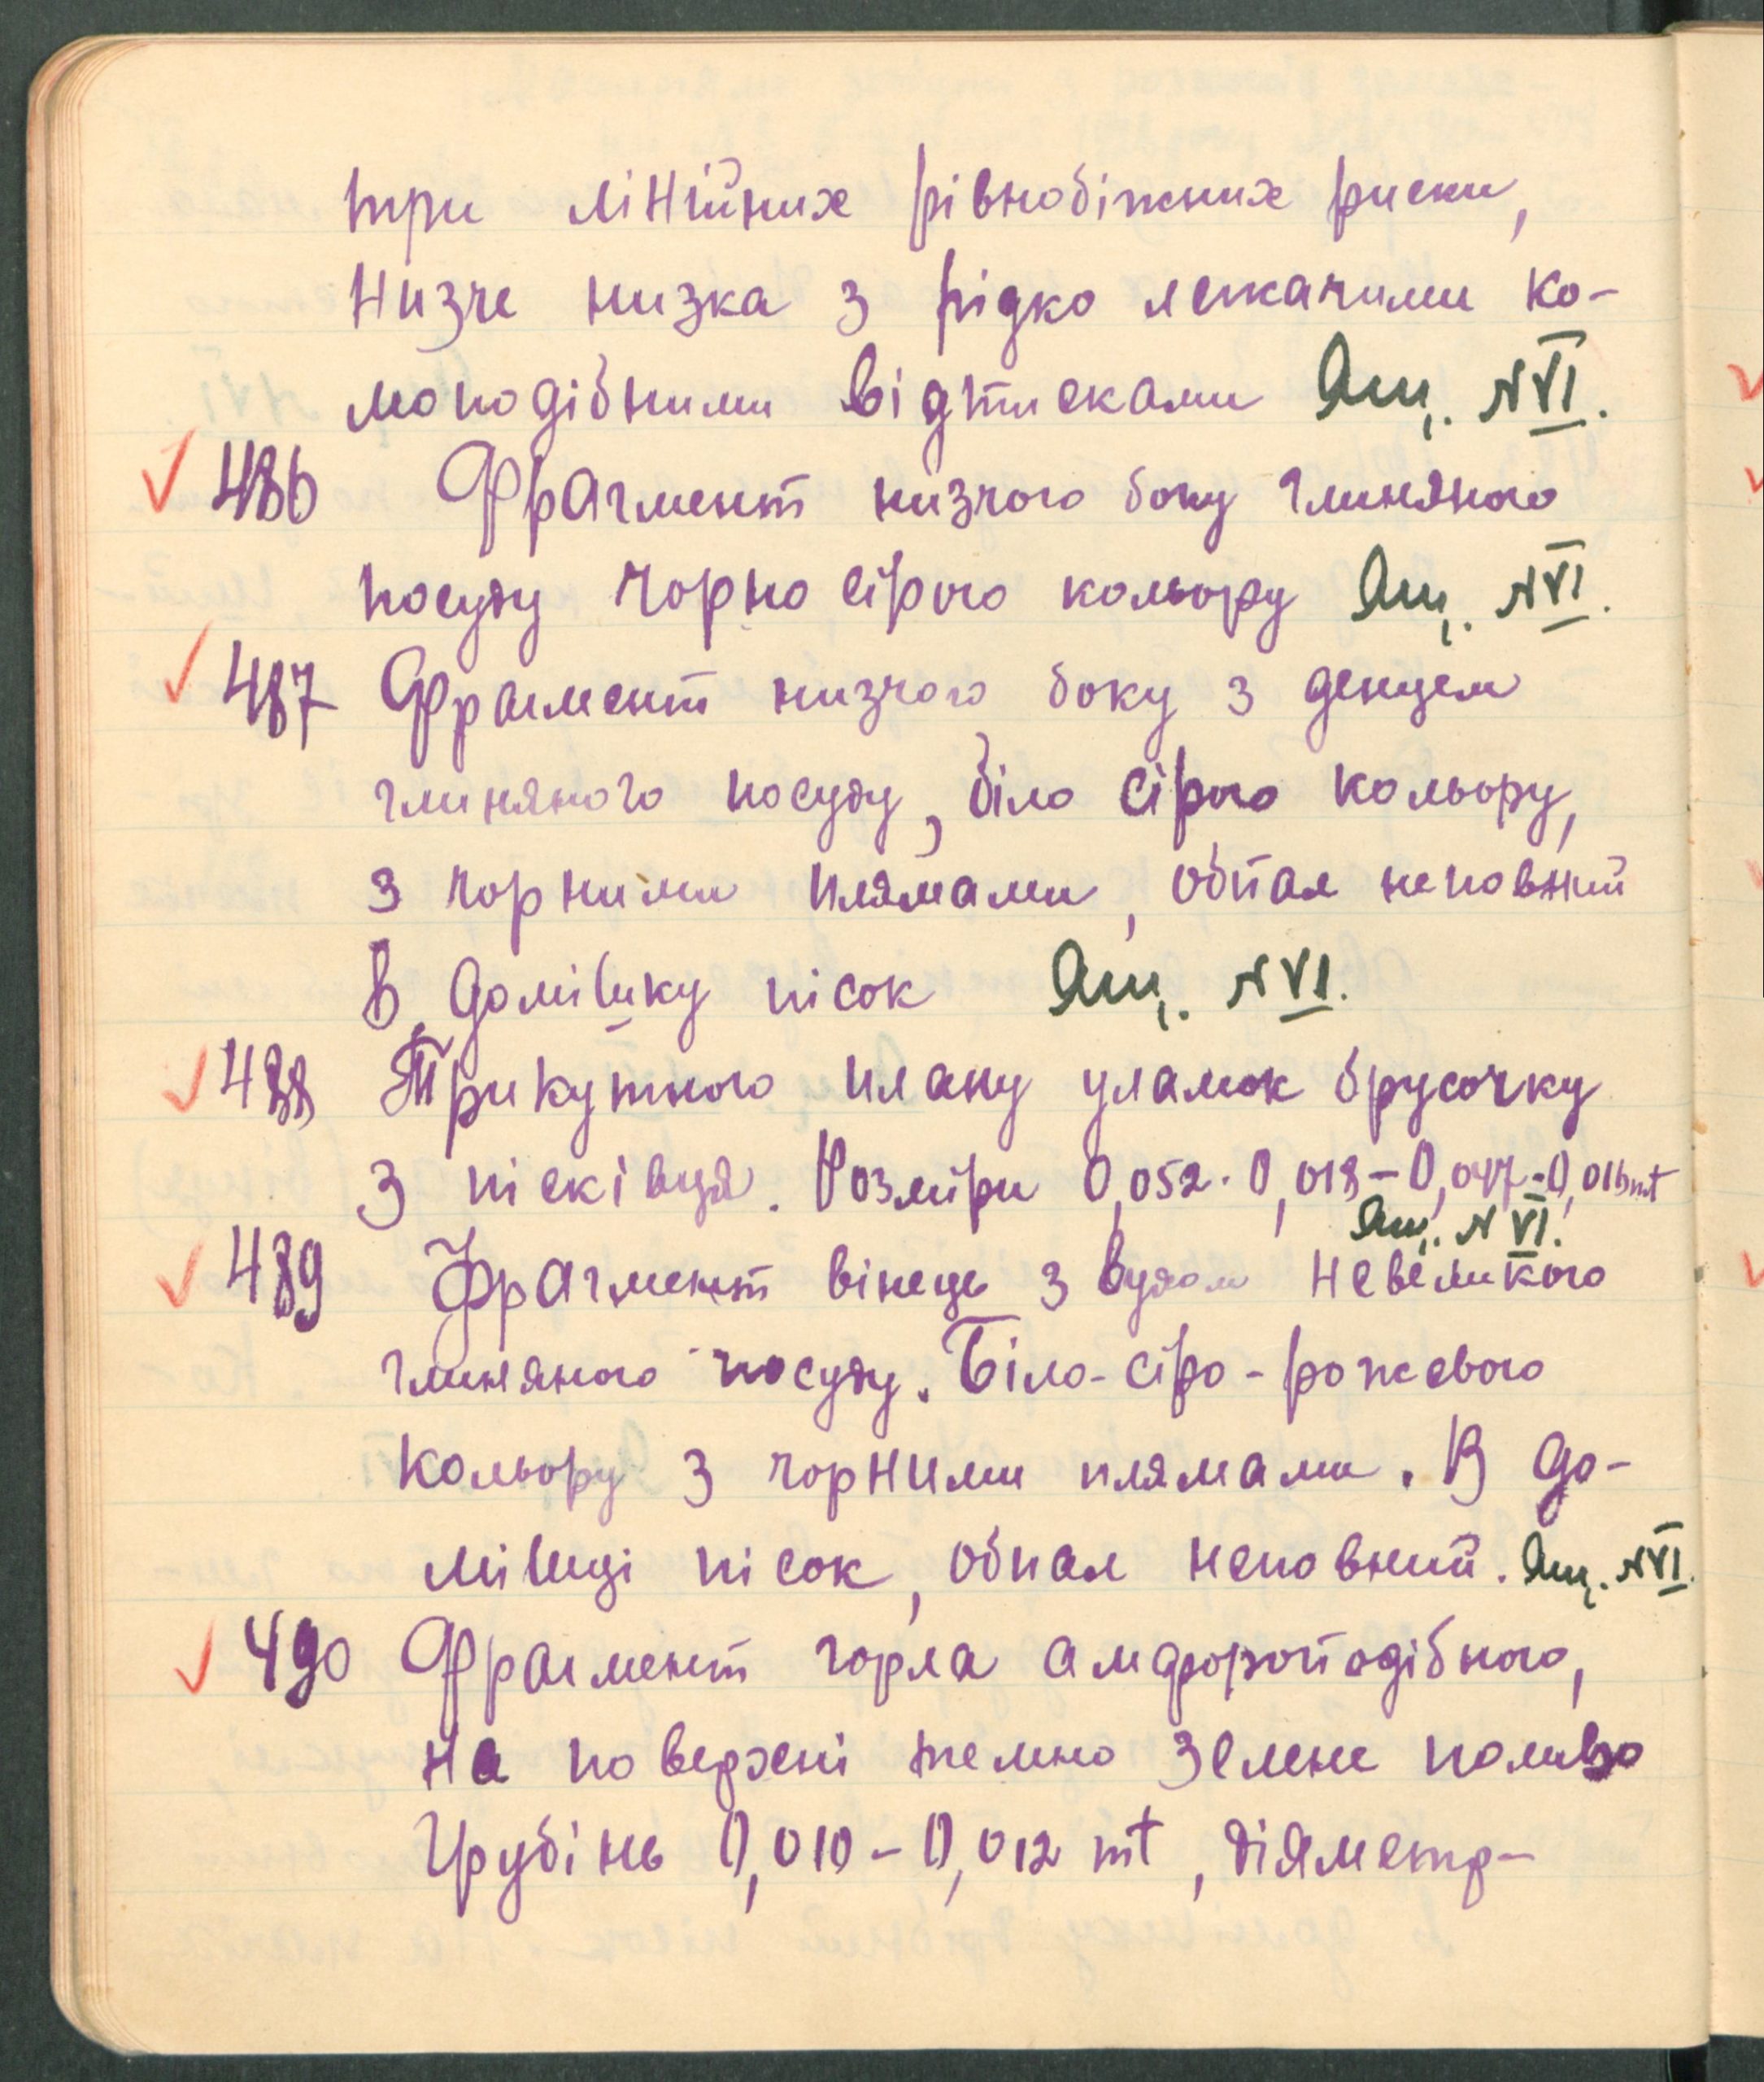 три лінійних рівнобіжних риски,
Низче низка з рідко лежачими ко-
моподібними відтисками Ящ. N VI.
486 Фрагмент низчого боку глиняного
посуду чорно сірого кольору Ящ. N VI.
487 Фрагмент низчого боку з денцем
глиняного посуду, біло сірого кольору,
з чорними плямами, обпал неповний
В домішку пісок Ящ. N VI.
488 Трикутного плану уламок брусочку
З пісківця. Розміри 0,052 · 0,018 – 0,047 – 0,016 mt
Ящ. N VI.
489 Фрагмент вінець з вухом Невеликого
глиняного посуду. Біло-сіро-рожевого
Кольору з чорними плямами. В до-
мішці пісок, обпал неповний. Ящ. N VI.
490 Фрагмент горла амфороподібного,
На поверхні темно зелене поливо
Грубінь 0,010 – 0,012 mt, діяметр-